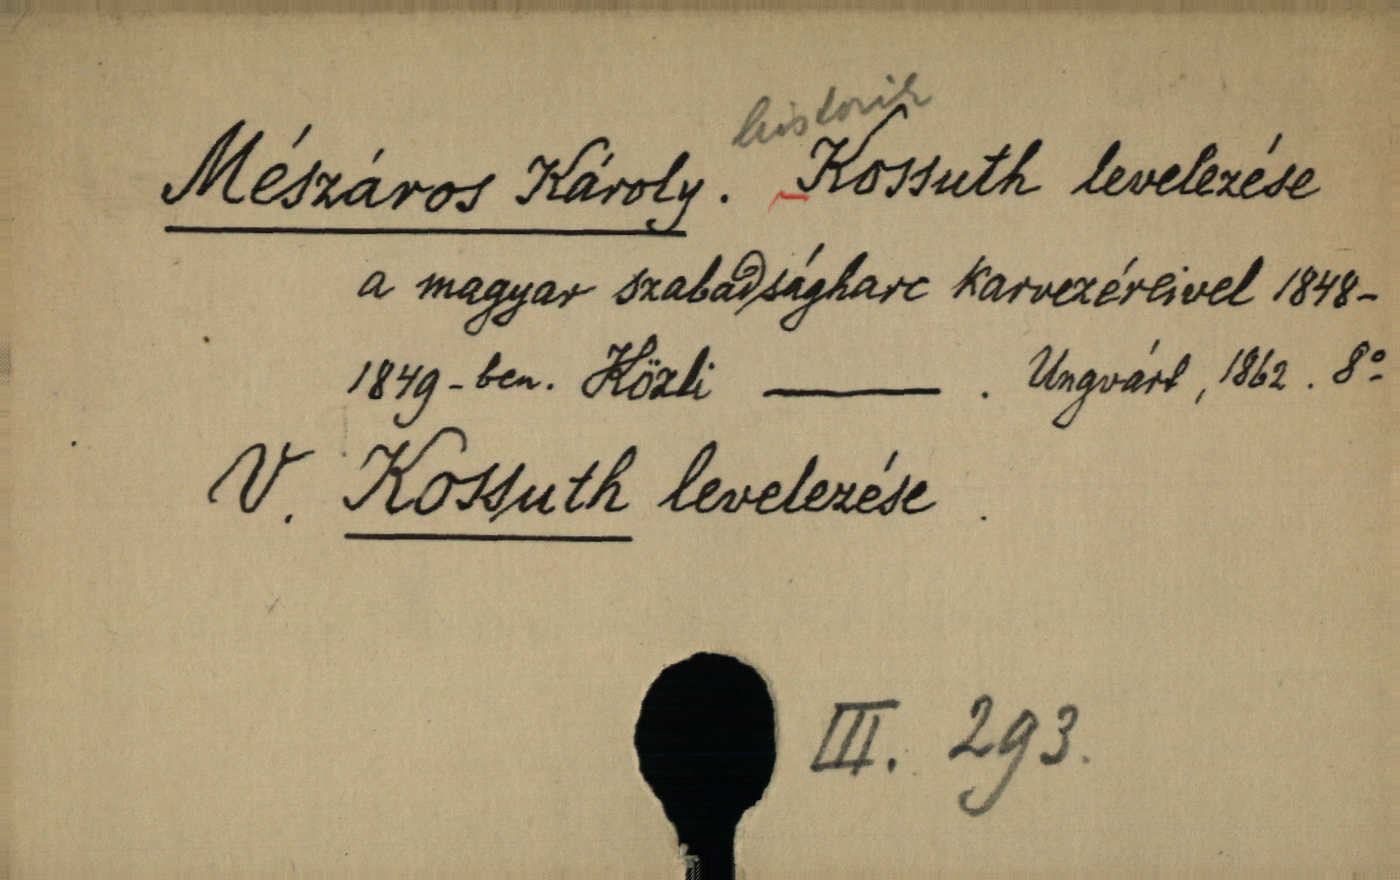 historik
Mészáros Károly. Kossuth levelezése
a magyar szabadságharc karvezéreivel 1848-
1849-ben. Közli ——— . Ungvárt, 1862. 8°
V. Kossuth levelezése.
III. 293.